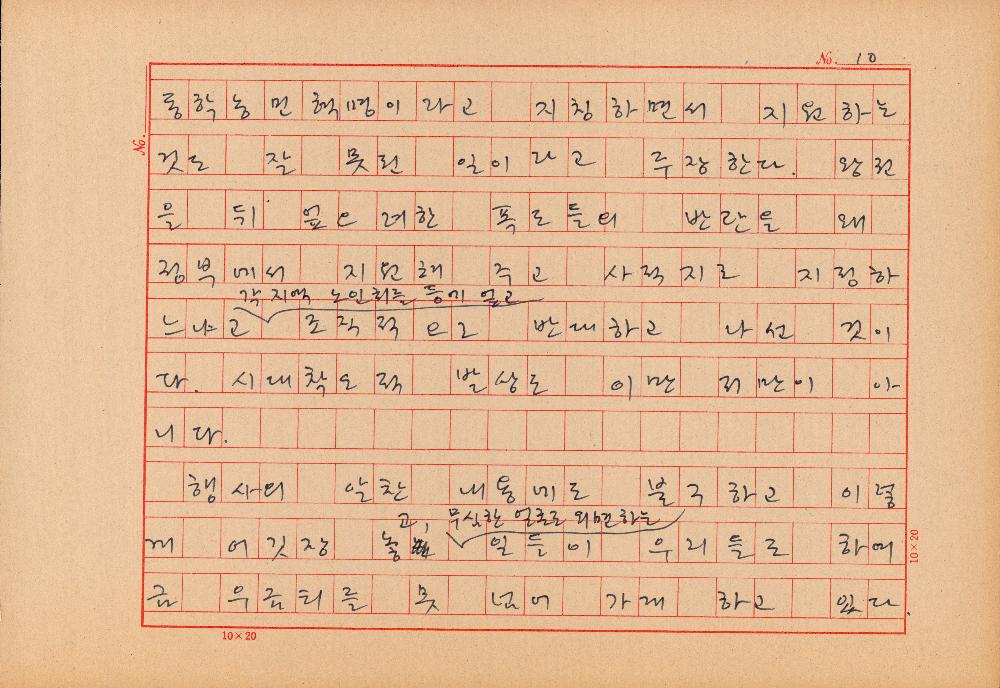 No. 10
No.
동학농민혁명이라고 지칭하면서 지원하는
것도 잘 못된 일이라고 주장한다. 왕권
을 뒤 엎으려한 폭도들의 반란을 왜
정부에서 지원해 주고 사적지로 지정하
각 지역 노인회를 등에 업고
느냐고 조직적으로 반대하고 나선 것이
다. 시대착오적 발상도 이만 저만이 아
니다.
행사의 알찬 내용에도 불구하고 이렇
고, 무심한 얼굴로 외면하는
게 어깃장 놓 일들이 우리들로 하여
금 우금티를 못 넘어 가게 하고 있다.
10×20
10×20